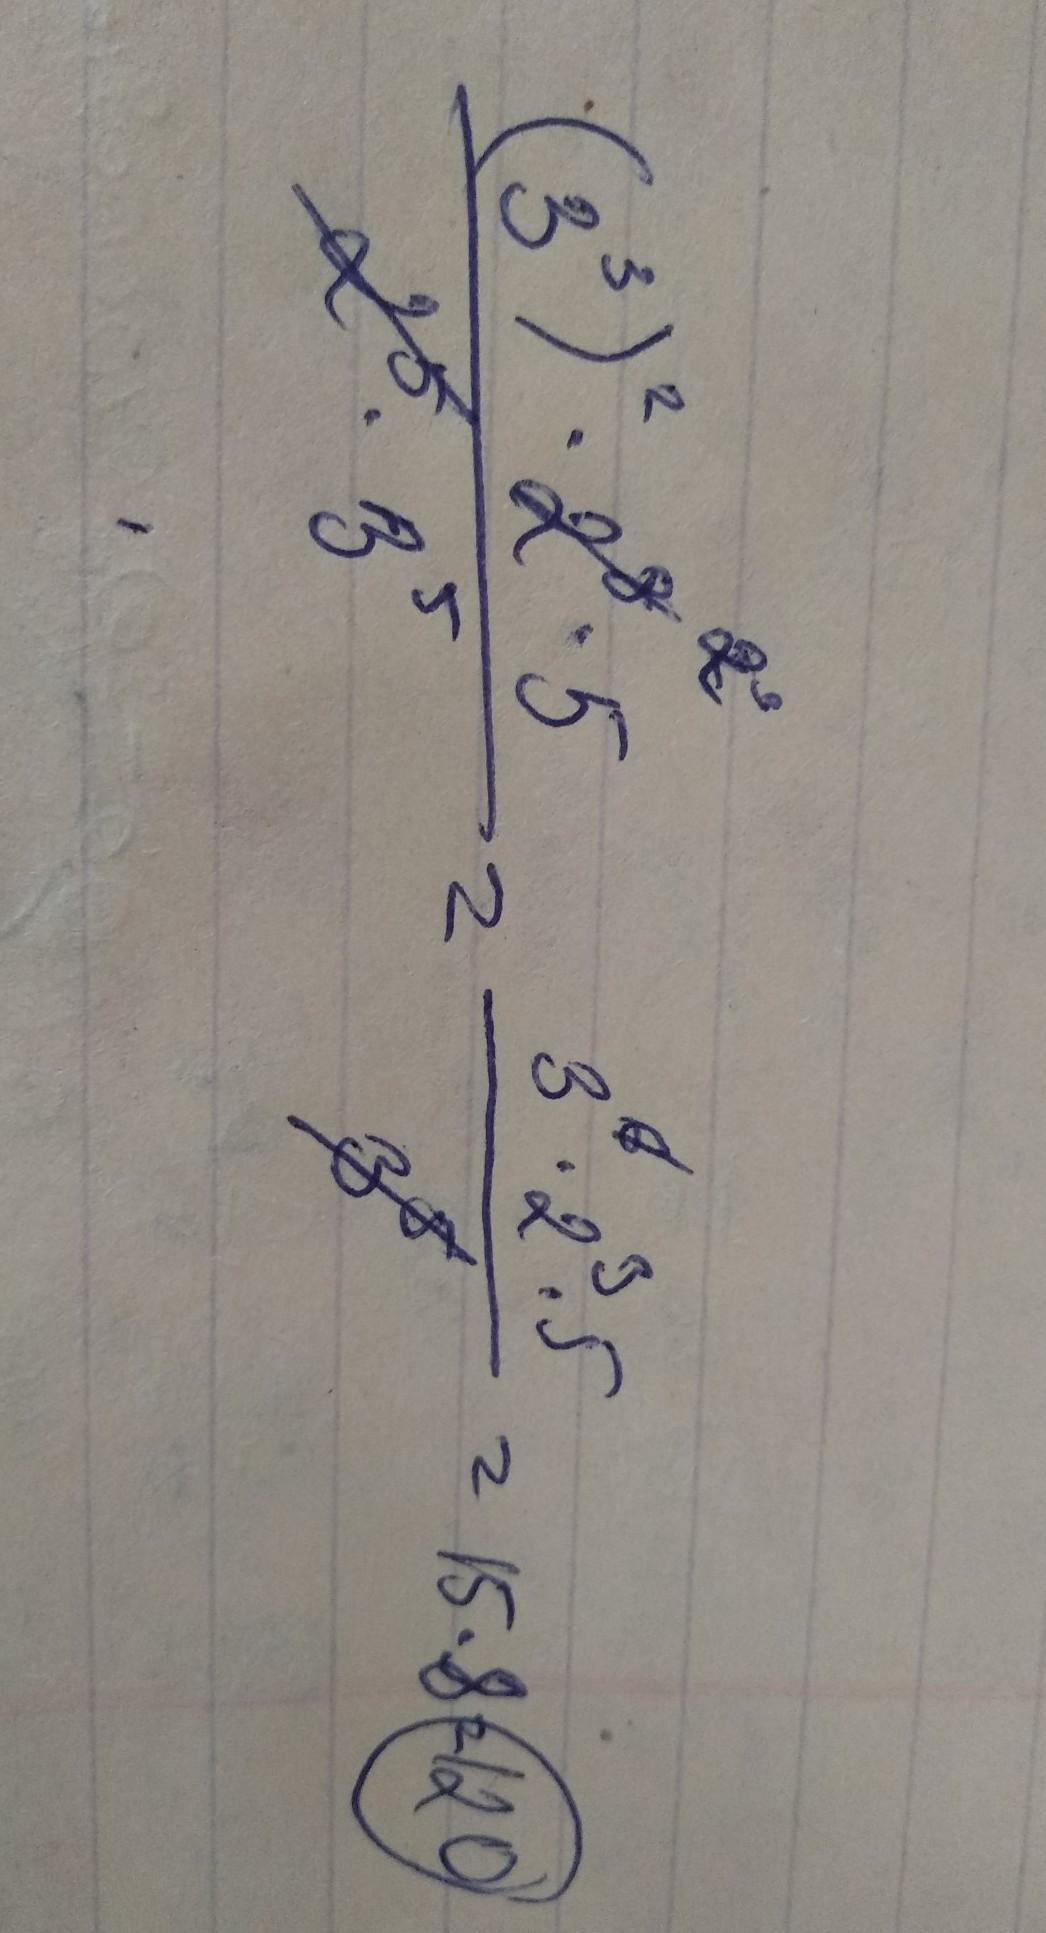 (3³)² · 2⁸ · 5 2³
2⁵ · 3⁵
= 3⁶ · 2³ · 5
3⁵
= 15 · 8 = 120